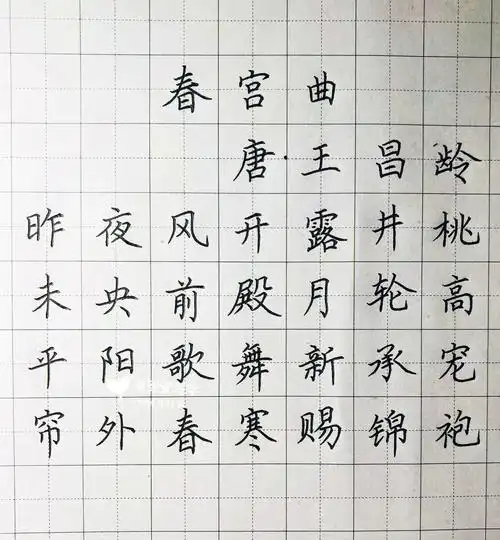 春宫曲
唐·王昌龄
昨夜风开露井桃
未央前殿月轮高
平阳歌舞新承宠
帘外春寒赐锦袍